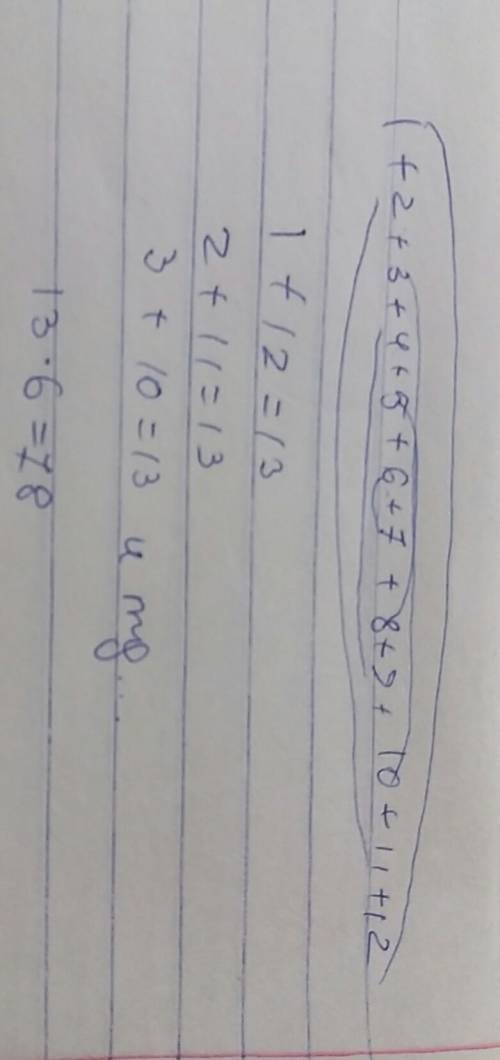 1+2+3+4+5+6+7+8+9+10+11+12
1+12=13
2+11=13
3+10=13 и тд...
13·6=78